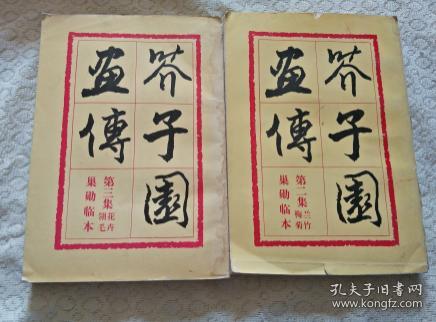 芥子園
畫傳
第三集花卉翎毛
巢勋临本
芥子園
畫傳
第二集兰竹梅菊
巢勋临本
孔夫子旧书网
www.kongfz.com